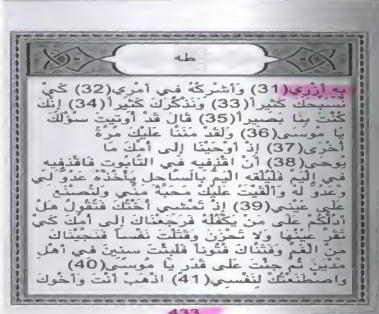 طه
بِهِ أَزْرِي(31) وَأَشْرِكْهُ فِي أَمْرِي(32) كَيْ
نُسَبِّحَكَ كَثِيراً(33) وَنَذْكُرَكَ كَثِيراً(34) إِنَّكَ
كُنْتَ بِنَا بَصِيراً(35) قَالَ قَدْ أُوتِيتَ سُؤْلَكَ
يَا مُوسَى(36) وَلَقَدْ مَنَنَّا عَلَيْكَ مَرَّةً
أُخْرَى(37) إِذْ أَوْحَيْنَا إِلَى أُمِّكَ مَا
يُوحَى(38) أَنْ اقْذِفِيهِ فِي التَّابُوتِ فَاقْذِفِيهِ
فِي الْيَمِّ فَلْيُلْقِهِ الْيَمُّ بِالسَّاحِلِ يَأْخُذْهُ عَدُوٌّ لِي
وَعَدُوٌّ لَهُ وَأَلْقَيْتُ عَلَيْكَ مَحَبَّةً مِنِّي وَلِتُصْنَعَ
عَلَى عَيْنِي(39) إِذْ تَمْشِي أُخْتُكَ فَتَقُولُ هَلْ
أَدُلُّكُمْ عَلَى مَنْ يَكْفُلُهُ فَرَجَعْنَاكَ إِلَى أُمِّكَ كَيْ
تَقَرَّ عَيْنُهَا وَلَا تَحْزَنَ وَقَتَلْتَ نَفْساً فَنَجَّيْنَاكَ
مِنْ الْغَمِّ وَفَتَنَّاكَ فُتُوناً فَلَبِثْتَ سِنِينَ فِي أَهْلِ
مَدْيَنَ ثُمَّ جِئْتَ عَلَى قَدَرٍ يَا مُوسَى(40)
وَاصْطَنَعْتُكَ لِنَفْسِي(41) اذْهَبْ أَنْتَ وَأَخُوكَ
433